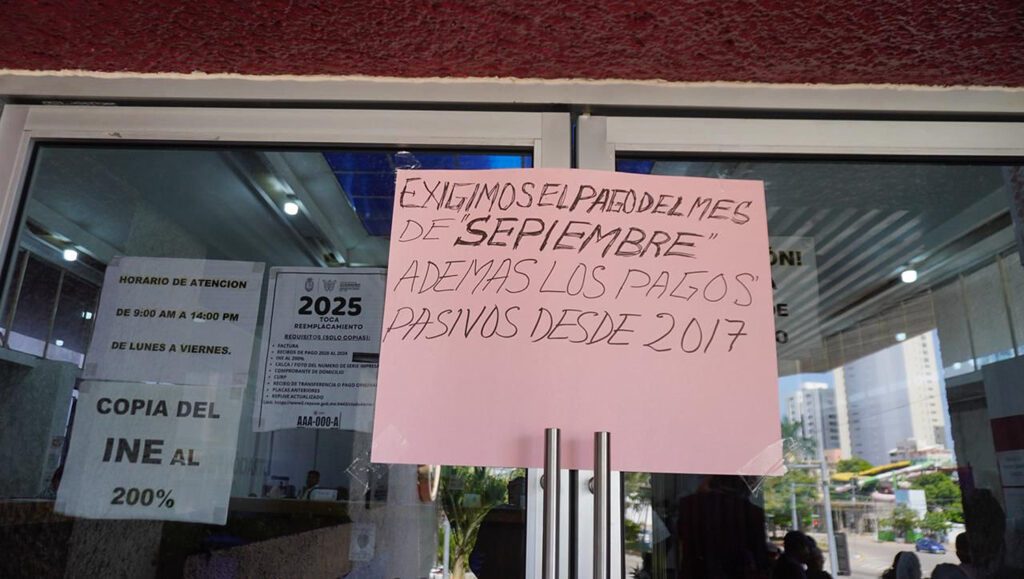 EXIGIMOS EL PAGO DEL MES
DE "SEPIEMBRE"
ADEMAS LOS PAGOS
PASIVOS DESDE 2017
HORARIO DE ATENCION
DE 9:00 AM A 14:00 PM
DE LUNES A VIERNES.
COPIA DEL
INE AL
200%
2025
TOCA
REEMPLACAMIENTO
REQUISITOS (SOLO COPIAS):
FACTURA
RECIBOS DE PAGO 2020 AL 2024
INE AL 200%
LALCA / FOTO DEL NUMERO DE SERIE
COMPROBANTE DE DOMICILIO
CURP
RECIBO DE TRANSFERENCIA O PAGO
PLACAS ANTERIORES
REPUVE ACTUALIZADO
AAA-000-A
ÓN!
DE